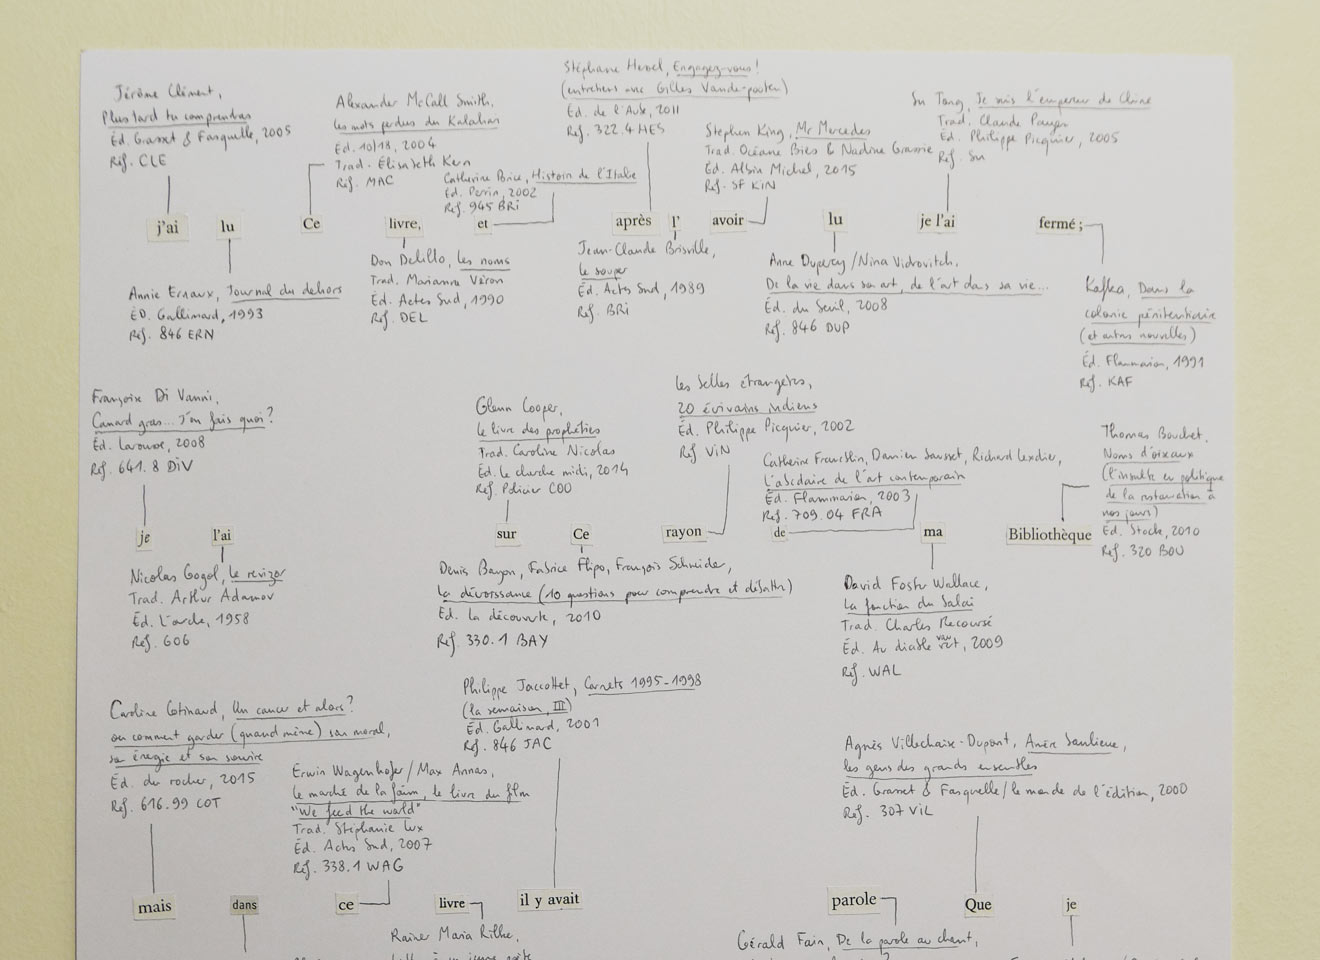 Jérôme Clément,
Plus tard tu comprendras
Éd. Grasset & Fasquelle, 2005
Réf. CLE
Alexander McCall Smith,
les mots perdus du Kalahari
Éd. 10/18, 2004
Trad. Élisabeth Kern
Réf. MAC
Catherine Brice, Histoire de l'Italie
Éd. Perrin, 2002
Réf. 945 BRI
Stéphane Hessel, Engagez-vous!
(entretiens avec Gilles Vanderpooten)
Éd. de l'Aube, 2011
Réf. 322.4 HES
Stephen King, Mr Mercedes
Trad. Océane Bies & Nadine Gassie
Éd. Albin Michel, 2015
Réf. SF KIN
Su Tong, Je suis l'empereur de Chine
Trad. Claude Payen
Éd. Philippe Picquier, 2005
Réf. Su
j'ai lu Ce livre, et après l' avoir lu je l'ai fermé ;
Annie Ernaux, Journal du dehors
ÉD. Gallimard, 1993
Réf. 846 ERN
Don Delillo, les noms
Trad. Marianne Véron
Éd. Actes Sud, 1990
Réf. DEL
Jean-Claude Brisville,
le souper
Éd. Actes Sud, 1989
Réf. BRI
Anne Duperey / Nina Vidrovitch,
De la vie dans son art, de l'art dans sa vie...
Éd. du Seuil, 2008
Réf. 846 DUP
Kafka, Dans la
colonie pénitentiaire
(et autres nouvelles)
Éd. Flammarion, 1991
Réf. KAF
Françoise Di Vanni,
Canard gras... J'en fais quoi?
Éd. Larousse, 2008
Réf. 641.8 DIV
Glenn Cooper,
le livre des prophéties
Trad. Caroline Nicolas
Éd. le cherche midi, 2014
Réf. Policier COO
les belles étrangères,
20 écrivains indiens
Éd. Philippe Picquier, 2002
Réf. VIN
Catherine Francblin, Damien Sausset, Richard Leydier,
L'abcdaire de l'art contemporain
Éd. Flammarion, 2003
Réf. 709.04 FRA
Thomas Bouchet,
Noms d'oiseaux
(l'insulte en politique
de la restauration à
nos jours)
Éd. Stock, 2010
Réf. 320 BOU
je l'ai sur Ce rayon de ma Bibliothèque
Nicolas Gogol, le revizor
Trad. Arthur Adamov
Éd. L'arche, 1958
Réf. GOG
Denis Bayon, Fabrice Flipo, François Schneider,
La décroissance (10 questions pour comprendre et débattre)
Éd. La découverte, 2010
Réf. 330.1 BAY
David Foster Wallace,
La fonction du balai
Trad. Charles Recoursé
Éd. Au diable vauvert, 2009
Réf. WAL
Caroline Cotinaud, Un cancer et alors?
ou comment garder (quand même) son moral,
son énergie et son sourire
Éd. du rocher, 2015
Réf. 616.99 COT
Erwin Wagenhofer / Max Annas,
le marché de la faim, le livre du film
"We feed the world"
Trad. Stéphanie Lux
Éd. Actes Sud, 2007
Réf. 338.1 WAG
Philippe Jaccottet, Carnets 1995-1998
(la semaison, III)
Éd. Gallimard, 2001
Réf. 846 JAC
Agnès Villechaise-Dupont, Amère banlieue,
les gens des grands ensembles
Éd. Grasset & Fasquelle / le monde de l'édition, 2000
Réf. 307 VIL
mais dans ce livre il y avait parole Que je
Rainer Maria Rilke,
Gérald Fain, De la parole au chant,